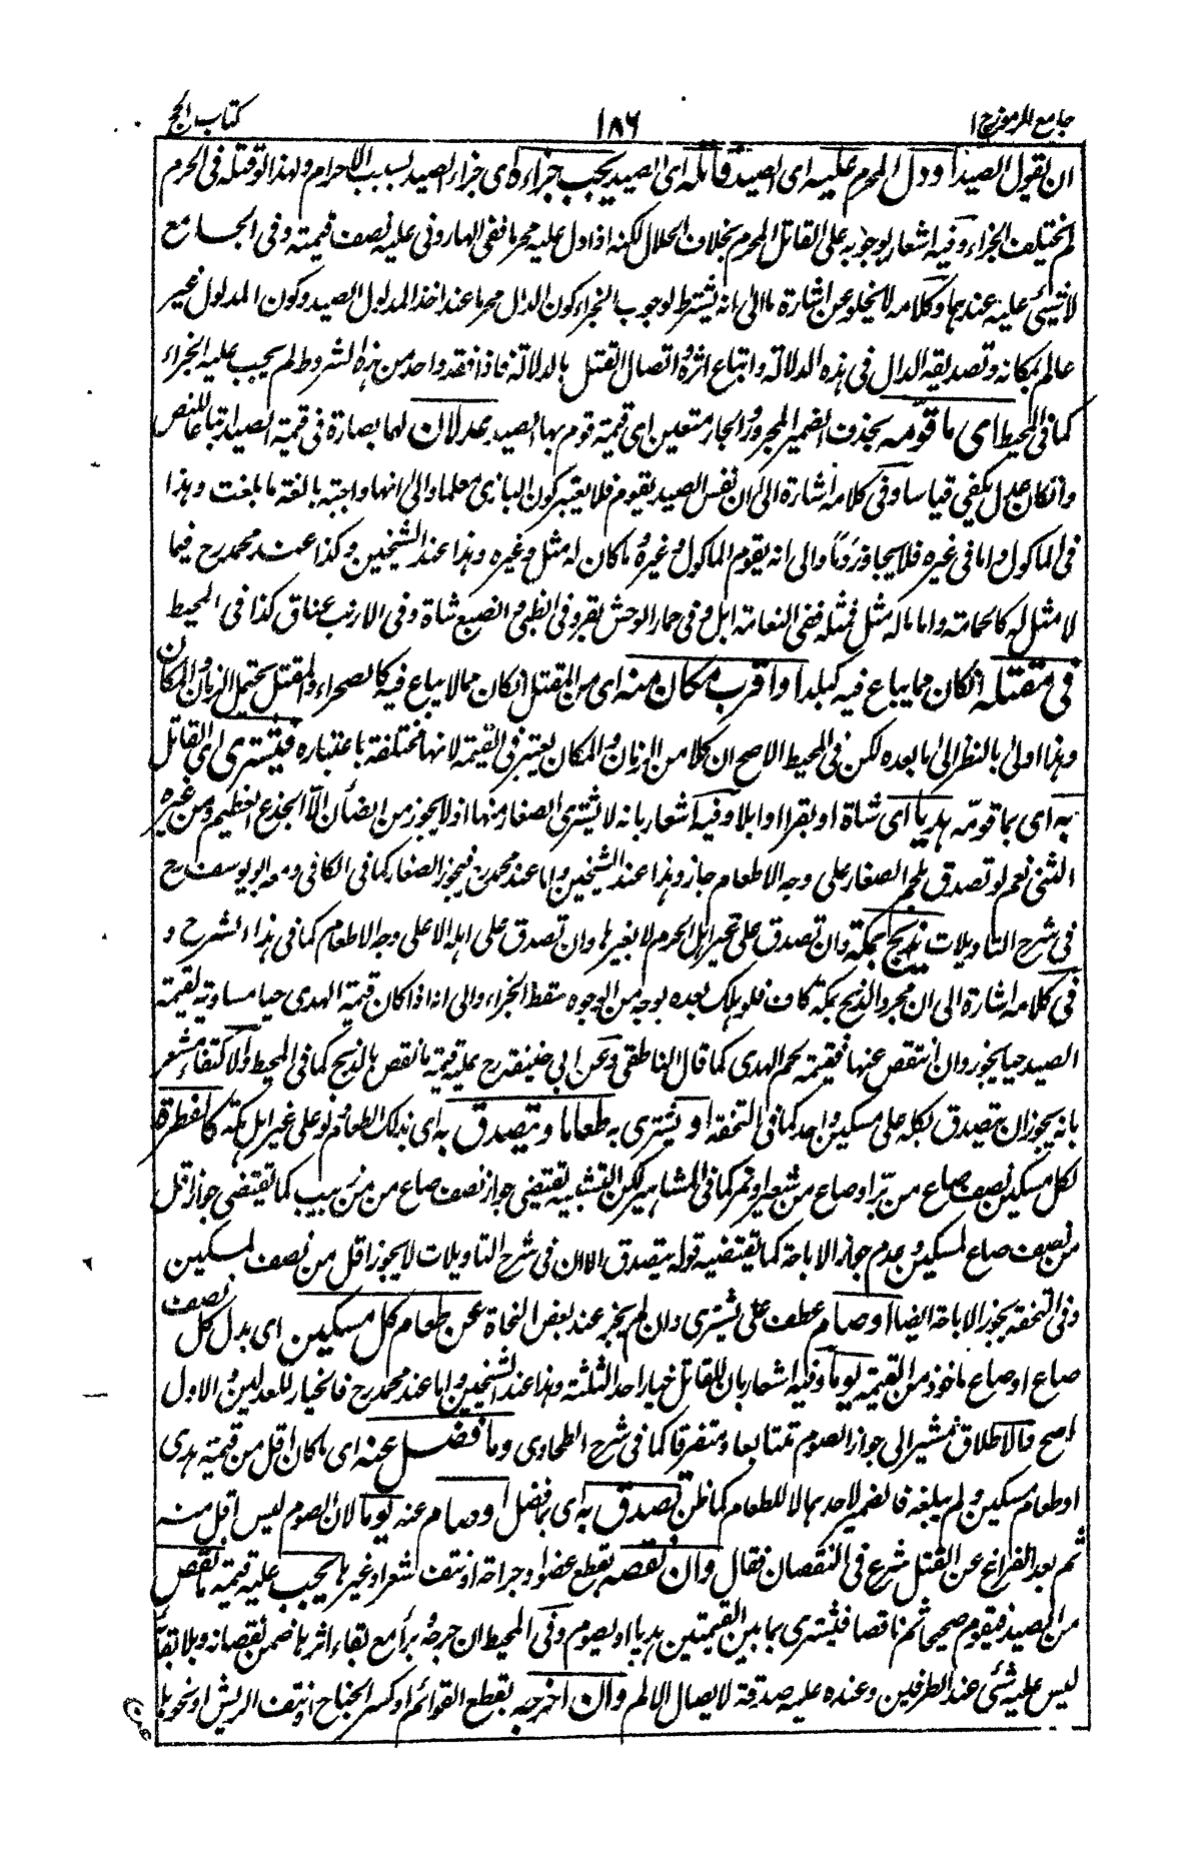 جامع الرموز ج ۱
۱۸۶
كتاب الحج
ان يقول الصيد او دل المحرم عليه اى الصيد قاتله اى الصيد يجب جزاءه اى جزاء الصيد بسبب الاحرام ولهذا لو قتله فى الحرم
لم يختلف الجزاء وفيه اشعار بوجوبه على القاتل المحرم بخلاف الحلال لكنه اذا دل عليه محرما ففى الهارونى عليه نصف قيمته وفى الجامع
لا شيئ عليه عندهما وكلامه لا يخلو عن اشارة ما الى انه يشترط لوجوب الجزاء كون الدال محرما عند اخذ المدلول الصيد وكون المدلول غير
عالم بمكانه وتصديقه الدال فى هذه الدلالة واتباع اثره واتصال القتل بالدلالة فاذا فقد واحد من هذه الشروط لم يجب عليه الجزاء
كما فى المحيط اى ما قومه بحذف الضمير المجرور والجار متعين اى قيمة قوم بها الصيد عدلان لهما بصارة فى قيمة الصيد اتباعا للنص
وانكان عدل يكفى قياسا وفى كلامه اشارة الى ان نفس الصيد يقوم فلا يعتبر كون البازى معلما والى انها واجبة بالغة ما بلغت وهذا
فى الماكول واما فى غيره فلا يجاوز دما والى انه يقوم الماكول وغيره ما كان له مثل وغيره وهذا عند الشيخين وكذا عند محمد رح فيما
لا مثل له كالحمامة واما ماله مثل فمثله ففى النعامة ابل وفى حمار الوحش بقر وفى الظبى والضبع شاة وفى الارنب عناق كذا فى المحيط
فى مقتله انكان مما يباع فيه كبلد او اقرب مكان منه اى من المقتل انكان مما لا يباع فيه كالصحراء والمقتل يحتمل الزمان والمكان
وهذا اولى بالنظر الى ما بعده لكن فى المحيط الاصح ان كلا من الزمان والمكان يعتبر فى القيمة لانها مختلفة باعتباره فيشترى اى القاتل
به اى بما قومه هديا اى شاة او بقرا او ابلا وفيه اشعار بانه لا يشترى الصغار منها اذ لا يجوز من الضأن الا الجذع العظيم ومن غيره
الثنى نعم لو تصدق بلحم الصغار على وجه الاطعام جاز وهذا عند الشيخين واما عند محمد رح فيجوز الصغار كما فى الكافى ومعه ابو يوسف رح
فى شرح التاويلات يذبح بمكة وان تصدق على غير اهل الحرم لا بغيرها وان تصدق على اهله الا على وجه الاطعام كما فى هذا الشرح و
فى كلامه اشارة الى ان مجرد الذبح بمكة كاف فلو هلك بعده بوجه من الوجوه سقط الجزاء والى انه اذا كان قيمة الهدى حيا مساوية لقيمة
الصيد حيا يجوز وان انتقص عنها فقيمة لحم الهدى كما قال الناطقى وعن ابى حنيفة رح عليه قيمة ما نقص بالذبح كما فى المحيط والاكتفاء مشعر
بانه يجوز ان يتصدق بكله على مسكين واحد كما فى التحفة او يشترى به طعاما ويتصدق به اى بذلك الطعام ولو على غير اهل مكة كالفطرة
لكل مسكين نصف صاع من بر او صاع من شعير او تمر كما فى المشاهير لكن التشبيه يقتضى جواز نصف صاع من زبيب كما يقتضى جواز اقل
من نصف صاع لمسكين وعدم جواز الاباحة كما يقتضيه قوله يتصدق الا ان فى شرح التاويلات لا يجوز اقل من نصف لمسكين
وفى التحفة يجوز الاباحة ايضا او صام عطف على يشترى وان لم يجز عند بعض النحاة عن طعام كل مسكين اى بدل كل نصف
صاع او صاع ماخوذ من القيمة يوما وفيه اشعار بان للقاتل خيار احد الثلثة وهذا عند الشيخين واما عند محمد رح فالخيار للعدلين والاول
اصح فالاطلاق مشير الى جواز الصوم متتابعا ومتفرقا كما فى شرح الطحاوى وما فضل عنه اى ما كان اقل من قيمة هدى
او طعام مسكين ولم يبلغه فالضمير لاحدهما لا للطعام كما ظن تصدق به اى بما فضل او صام عنه يوما لان الصوم ليس اقل منه
ثم بعد الفراغ عن القتل شرع فى النقصان فقال وان نقصه بقطع عضو او جراحة او نتف شعر او غيرها يجب عليه قيمة ما نقص
من الصيد فيقوم صحيحا ثم ناقصا فيشترى بما بين القيمتين هديا او يصوم وفى المحيط ان جرحه برأ مع بقاء اثرها ضمن نقصانه وبلا بقائه
ليس عليه شئ عند الطرفين وعنده عليه صدقة لايصال الالم وان اخرجه بقطع القوائم او كسر الجناح او نتف الريش او نحوها